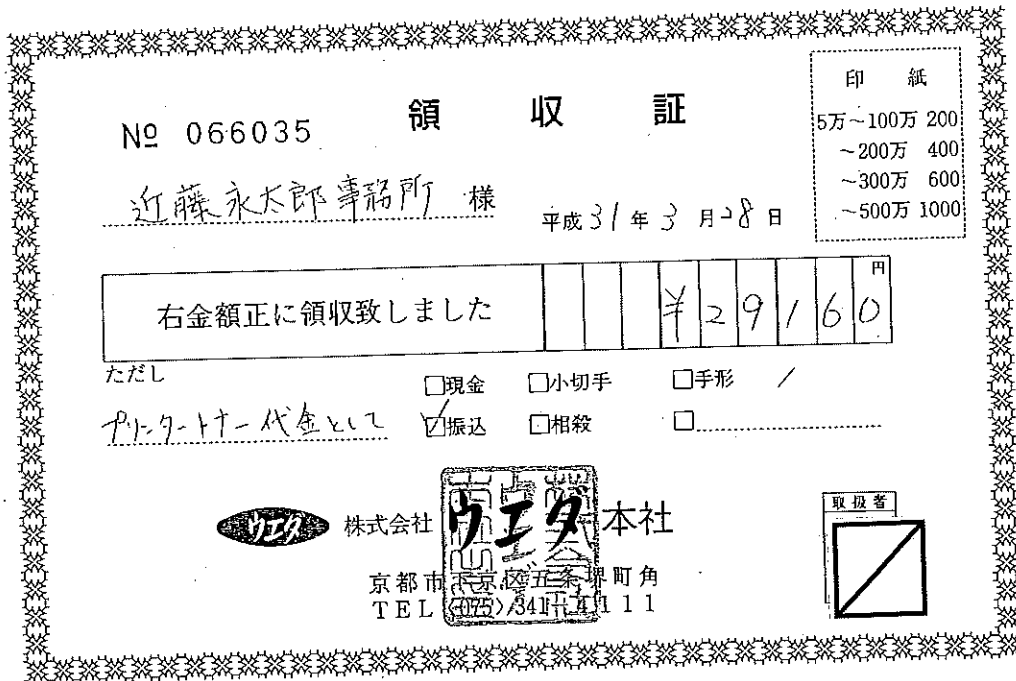 印 紙
5万～100万 200
～200万 400
～300万 600
～500万 1000
№ 066035 領 収 証
近藤永太郎事務所 様
平成31年3月28日
右金額正に領収致しました ¥29160円
ただし
□現金 □小切手 □手形
プリンタートナー代金として ☑振込 □相殺 □
ウエダ 株式会社ウエダ本社
京都市下京区五条堺町角
TEL (075) 341-4111
取扱者